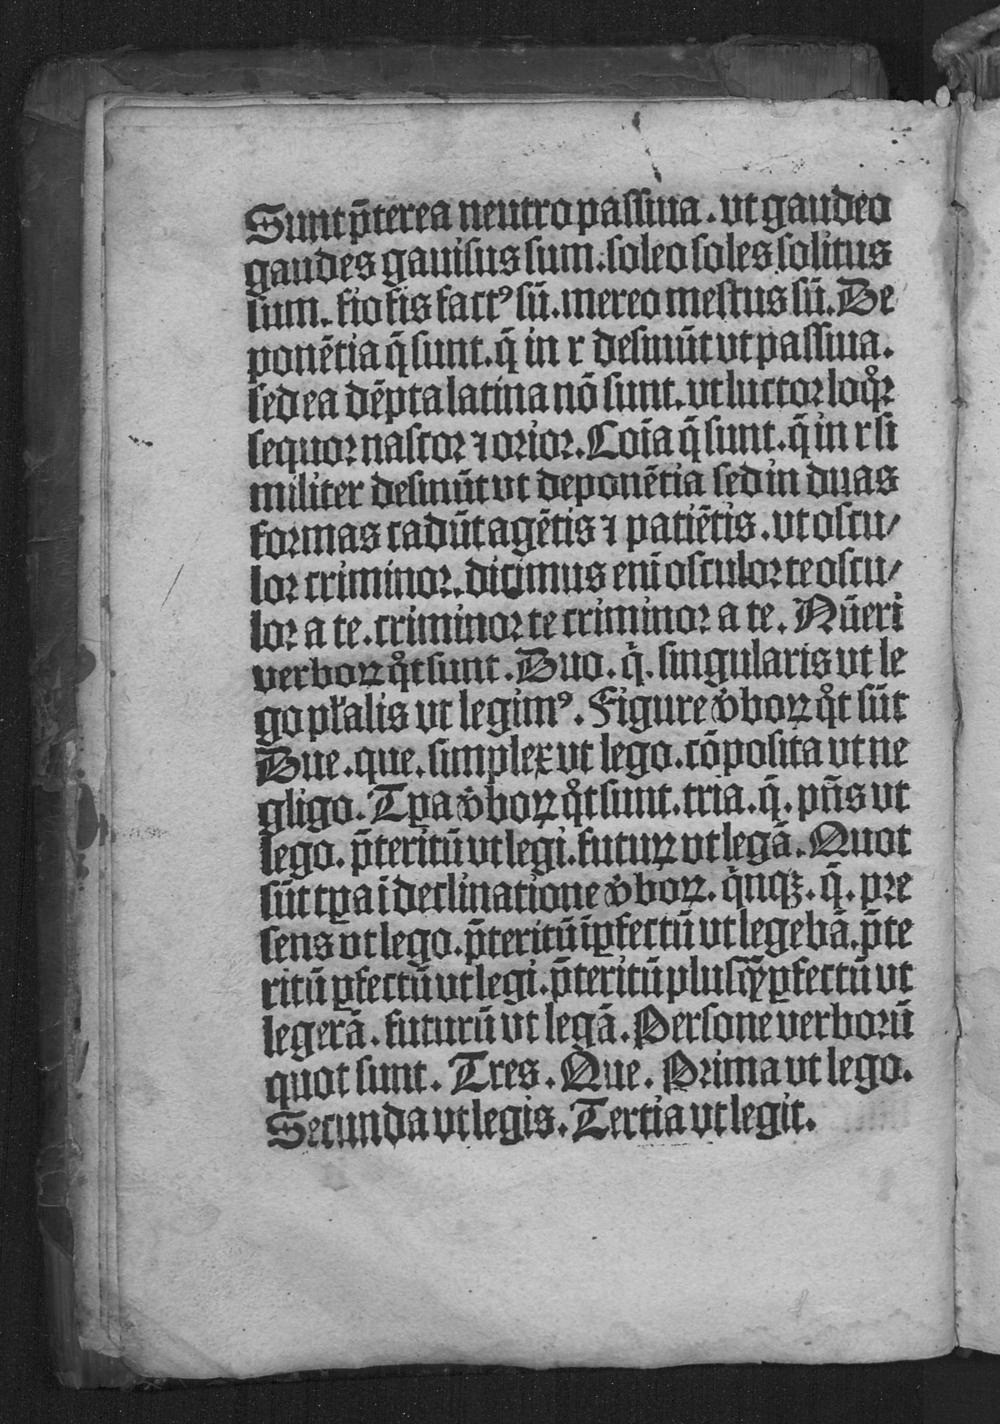 Sunt p̄terea neutro passiua. ut gaudeo
gaudes gauisus sum. soleo soles solitus
sum. fio fis factꝰ sū. mereo mestus sū. De
ponētia q̄ sunt. q̄ in r desinūt ut passiua.
sed ea dēpta latina nō sunt. ut luctor loqͦr
sequor nascor ⁊ orior. Coīa q̄ sunt. q̄ in r si
militer desinūt ut deponētia sed in duas
formas cadūt agētis ⁊ patiētis. ut oscu/
lor criminor. dicimus enī osculor te oscu/
lor a te. criminor te criminor a te. Nūeri
verboꝝ qͦt sunt. Duo. q̄. singularis ut le
go pl̄alis ut legimꝰ. Figure v̾boꝝ qͦt sūt
Due. que. simplex ut lego. cōposita ut ne
gligo. Tꝑa v̾boꝝ qͦt sunt. tria. q̄. pn̄s ut
lego. p̄teritū ut legi. futuꝝ ut legā. Quot
sūt tꝑa ī declinatione v̾boꝝ. qͥnqꝫ. q̄. pre
sens ut lego. p̄teritū īꝑfectū ut legebā. p̄te
ritū ꝑfectū ut legi. p̄teritū plusqꝫꝑfectū ut
legerā. futurū ut legā. Persone verborū
quot sunt. Tres. Que. Prima ut lego.
Secunda ut legis. Tertia ut legit.